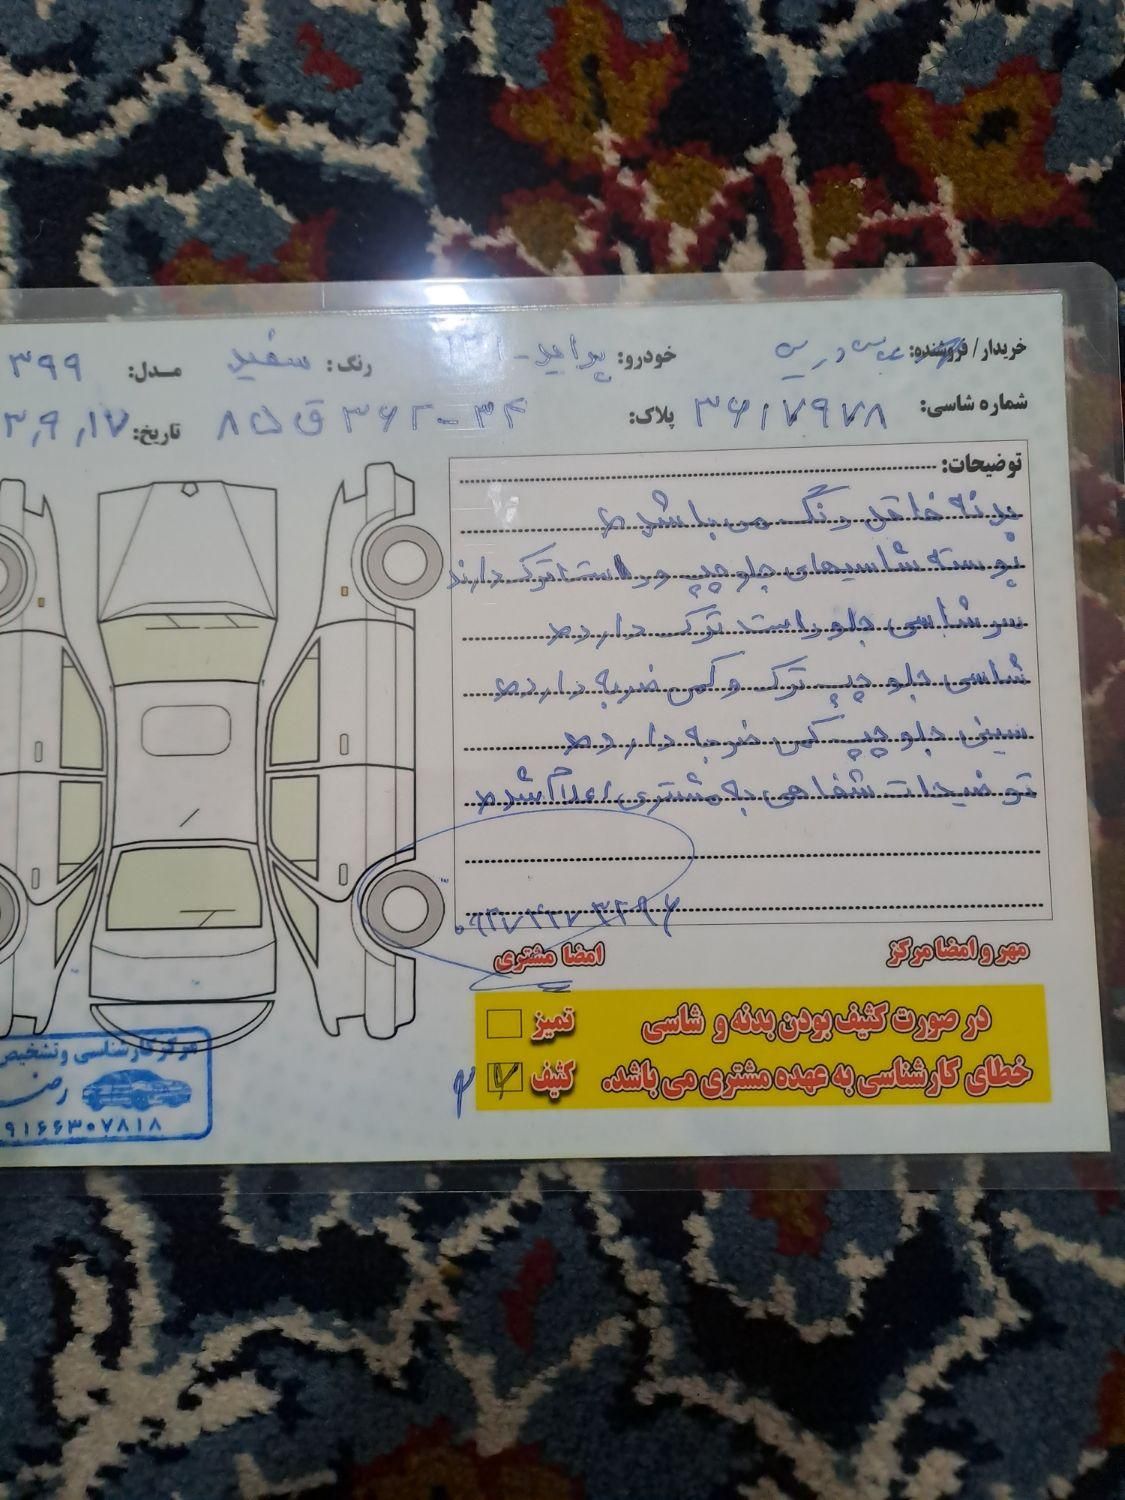 خریدار/فروشنده: خودرو: پراید-۱۳۱ رنگ: سفید مـدل: ۳۹۹
شماره شاسی: ۳۶۱۷۹۷۸ پلاک: ۳۴-۳۶۲ ق ۸۵ تاریخ: ۳٫۹٫۱۷
توضیحات:
بدنه فاقد رنگ می باشد
پوسته شاسیهای جلو چپ و راست ترک دارند
سر شاسی جلو راست ترک دارد
شاسی جلو چپ ترک و کمی ضربه دارد
سینی جلو چپ کمی ضربه دارد
توضیحات شفاهی به مشتری اعلام شد
مهر و امضا مرکز امضا مشتری
در صورت کثیف بودن بدنه و شاسی تمیز
خطای کارشناسی به عهده مشتری می باشد. کثیف
مرکز کارشناسی و تشخیص
۹۱۶۶۳۰۷۸۱۸